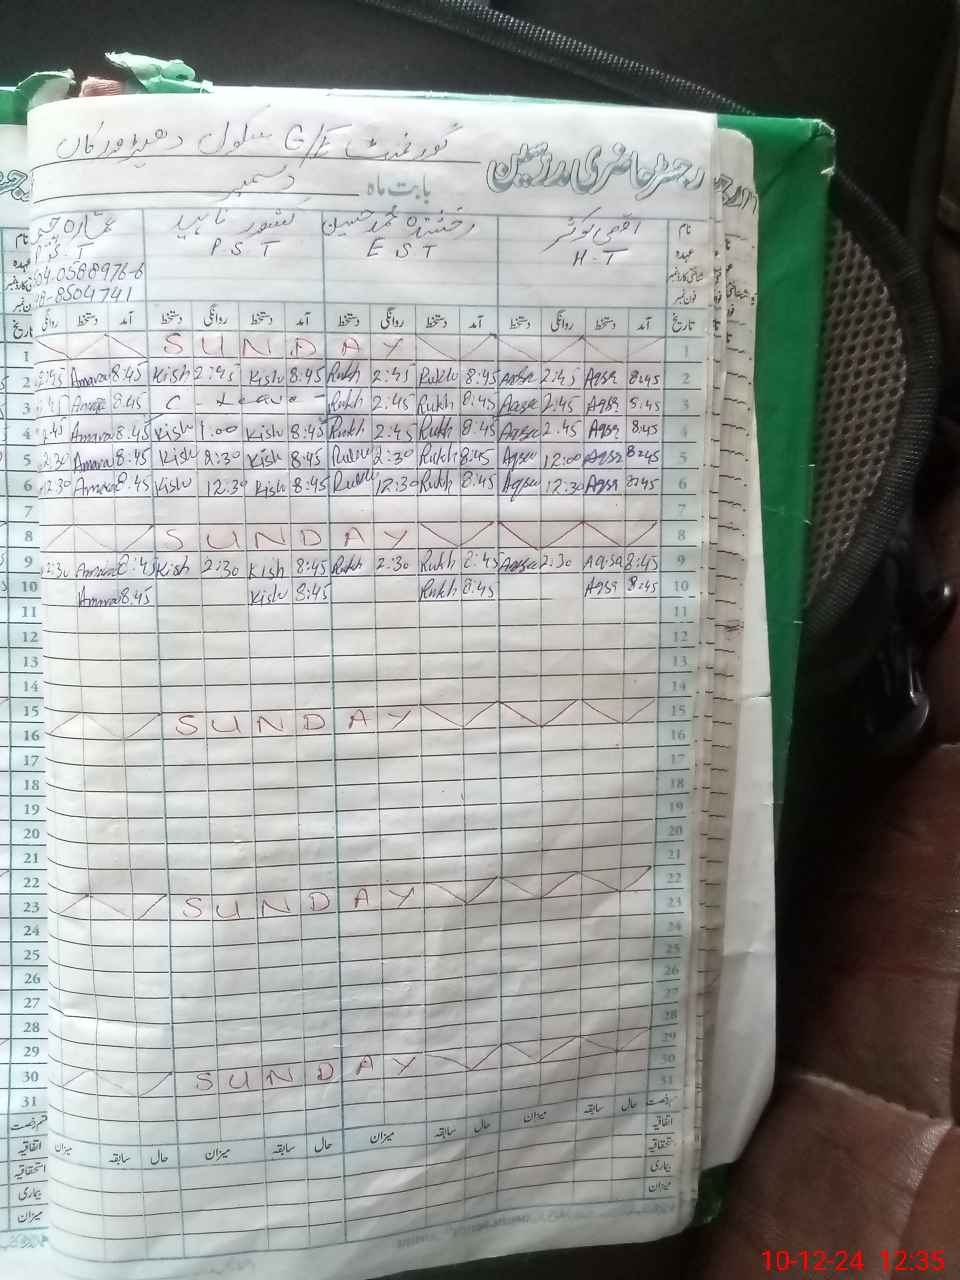 گورنمنٹ G/E سکول
رجسٹر حاضری مدرسین
بابت ماہ دسمبر
نام اقصیٰ کوثر رخشندہ محمد حسین کشور ناہید عمارہ
عہدہ H.T E S T P.S.T P.S.T
شناختی کارڈ نمبر
فون نمبر 8504741
تاریخ آمد دستخط روانگی دستخط آمد دستخط روانگی دستخط آمد دستخط روانگی دستخط آمد دستخط روانگی تاریخ
1 SUNDAY 1
2 2:45 Amara 8:45 Kish 2:45 Kish 8:45 Rukh 2:45 Rukh 8:45 Aqsa 2:45 Aqsa 8:45 2
3 Amara 8:45 C - Leave - Rukh 2:45 Rukh 8:45 Aqsa 2:45 Aqsa 8:45 3
4 Amara 8:45 Kish 1:00 Kish 8:45 Rukh 2:45 Rukh 8:45 Aqsa 2:45 Aqsa 8:45 4
5 2:30 Amara 8:45 Kish 2:30 Kish 8:45 Rukh 2:30 Rukh 8:45 Aqsa 12:00 Aqsa 8:45 5
6 12:30 Amara 8:45 Kish 12:30 Kish 8:45 Rukh 12:30 Rukh 8:45 Aqsa 12:30 Aqsa 8:45 6
7 7
8 SUNDAY 8
9 2:30 Amara 8:45 Kish 2:30 Kish 8:45 Rukh 2:30 Rukh 8:45 Aqsa 2:30 Aqsa 8:45 9
10 Amara 8:45 Kish 8:45 Rukh 8:45 Aqsa 8:45 10
11 11
12 12
13 13
14 14
15 SUNDAY 15
16 16
17 17
18 18
19 19
20 20
21 21
22 SUNDAY 22
23 23
24 24
25 25
26 26
27 27
28 28
29 SUNDAY 29
30 30
31 31
قسم رخصت حال سابقہ میزان حال سابقہ میزان حال سابقہ میزان حال سابقہ میزان
اتفاقیہ اتفاقیہ
استحقاقیہ استحقاقیہ
بیماری بیماری
میزان میزان
10-12-24 12:35